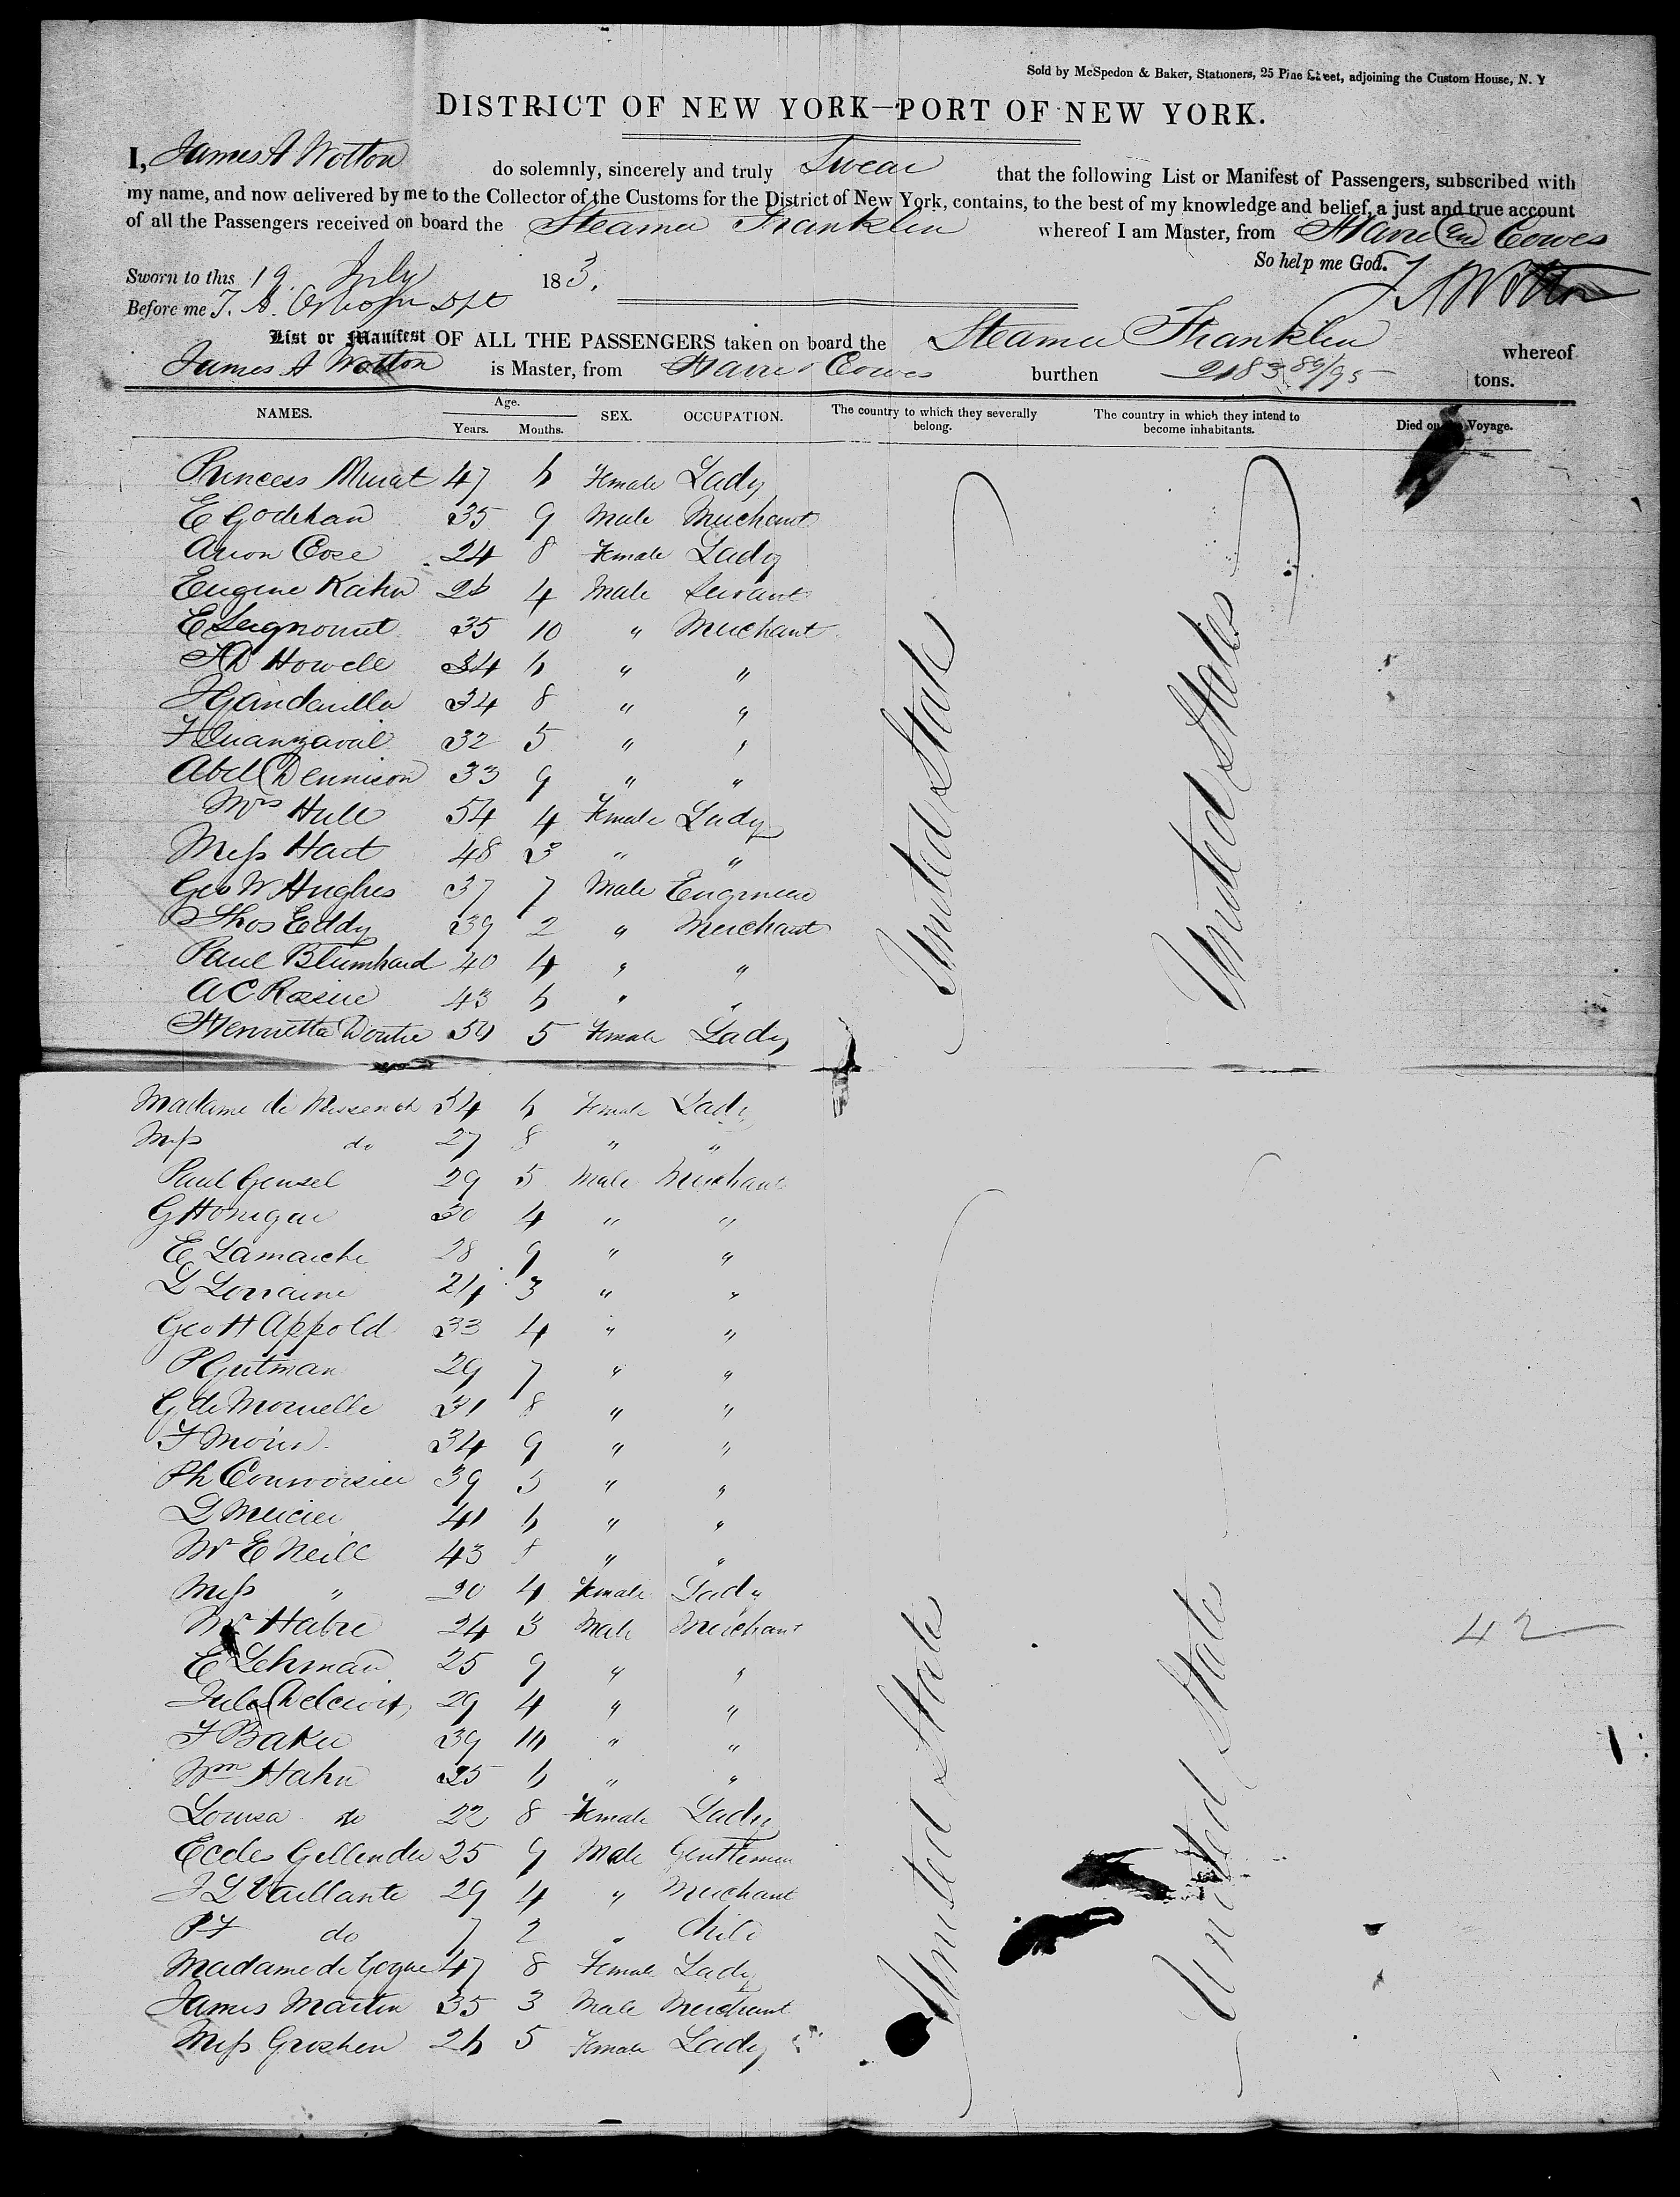 Sold by McSpedon & Baker, Stationers, 25 Pine Street, adjoining the Custom House, N. Y
DISTRICT OF NEW YORK—PORT OF NEW YORK.
I, James A Wotton do solemnly, sincerely and truly Swear that the following List or Manifest of Passengers, subscribed with
my name, and now delivered by me to the Collector of the Customs for the District of New York, contains, to the best of my knowledge and belief, a just and true account
of all the Passengers received on board the Steamer Franklin whereof I am Master, from Havre and Cowes
So help me God. J A Wotton
Sworn to this 19 July 183.
Before me T. A. Dpt
List or Manifest OF ALL THE PASSENGERS taken on board the Steamer Franklin whereof
James A Wotton is Master, from Havre & Cowes burthen 2183 89/95 tons.
NAMES. Age. Years. Months. SEX. OCCUPATION. The country to which they severally belong. The country in which they intend to become inhabitants. Died on Voyage.
Princess Murat 47 6 Female Lady
E Godchau 35 9 Male Merchant
Arion Cose 24 8 Female Lady
Eugene Kahn 26 4 Male Servant
E Seignouret 35 10 " Merchant
Howell 34 6 " "
34 8 " "
32 5 " "
Abel Dennison 33 9 " "
Mrs Hull 54 4 Female Lady
Miss Hart 48 3 " "
Geo W Hughes 37 7 Male Engineer
Thos Eddy 39 2 " Merchant
Paul Blumhard 40 4 " "
A C Rosire 43 6 " "
Henrietta Doutre 50 5 Female Lady
United States
United States
Madame de 54 6 Female Lady
Miss do 27 8 " "
Paul Gensel 29 5 Male Merchant
G Honigar 30 4 " "
E Lamarche 28 9 " "
L Lorraine 24 3 " "
Geo H Appold 33 4 " "
P Gutman 29 7 " "
G de Mornelle 31 8 " "
F Moris 34 9 " "
Ph Courvoisier 39 5 " "
L Mercier 41 6 " "
Mr E Neill 43 8 " "
Miss " 20 4 Female Lady
Mr Habre 24 3 Male Merchant
E Lehman 25 9 " "
Jules Delcroix 29 4 " "
F Baker 39 10 " "
Wm Hahn 25 6 " "
Louisa do 22 8 Female Lady
Eccles Gellender 25 9 Male Gentleman
J L Vaillante 29 4 " Merchant
P F do 7 2 " Child
Madame de Gogue 47 8 Female Lady
James Martin 35 3 Male Merchant
Miss Groshen 26 5 Female Lady
United States
United States
42